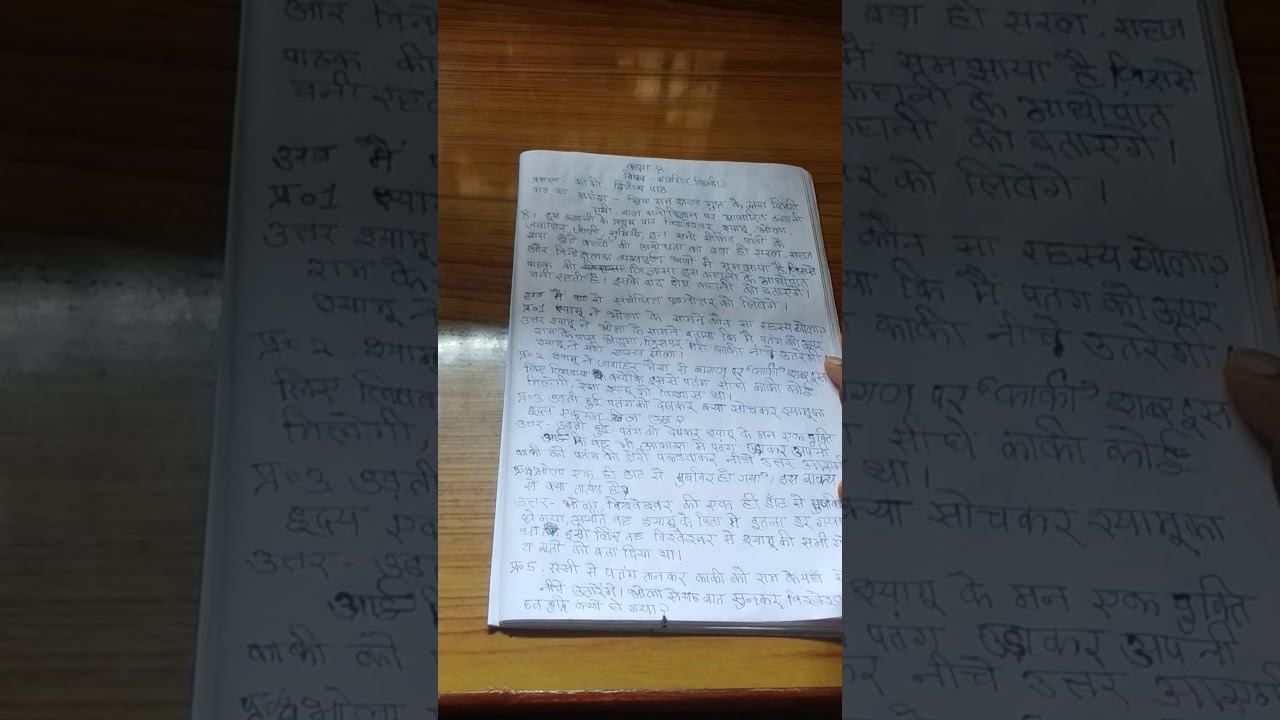 कक्षा 8
विषय - मंजरी (हिन्दी)
प्रकरण- काकी द्वितीय पाठ
पाठ का सारांश - सिया राम शरण गुप्त के द्वारा लिखी
बाल मनोविज्ञान पर आधारित कहानी
है। इस कहानी के प्रमुख पात्र विश्वेश्वर श्यामू, भोला,
जवाहिर
द्वारा छोटे बच्चों की का बड़ा ही सरल, सहज
और भाषा में आया है जिससे
पाठक की जिज्ञासा इस कहानी के आद्योपांत
बनी रहती है। इसके बाद शेष कहानी को बताएंगे।
अब मैं पाठ से संबंधित प्रश्नोत्तर को लिखेंगे।
प्र०1 श्यामू ने भोला के सामने कौन सा रहस्य खोला?
उत्तर श्यामू ने भोला के सामने बताया कि मैं पतंग को ऊपर
राम के पास काकी नीचे उतरेगी
श्यामू ने यही रहस्य खोला।
प्र०2. श्यामू ने जवाहिर भैया से कागज पर "काकी" शब्द इस
लिए लिखवाया क्योंकि इससे पतंग सीधे काकी कोई
मिलेगी, ऐसा श्यामू को विश्वास था।
प्र०3 उड़ती हुई पतंग को देखकर क्या सोचकर श्यामू का
हृदय एकदम खिल उठा?
उत्तर- उड़ती हुई पतंग को देखकर श्यामू के मन एक युक्ति
आई कि वह भी आकाश में पतंग उड़ाकर अपनी
काकी को पतंग की डोरी पकड़वाकर नीचे उत्तर आएगी
प्र०4 भोला एक ही डाट से मुखबिर हो गया, इस वाक्य
से क्या तात्पर्य है?
उत्तर- भोला, विश्वेश्वर की एक ही डाँट से
हो गया, अर्थात वह श्यामू के पिता से इतना डर गया
था कि इसी लिए वह विश्वेश्वर से श्यामू की सभी
बातों को बता दिया था।
प्र० 5. रस्सी से पतंग तानकर काकी को राम के यहाँ से
नीचे उतारेंगे। भोला से यह बात सुनकर
क्यों हो गया?